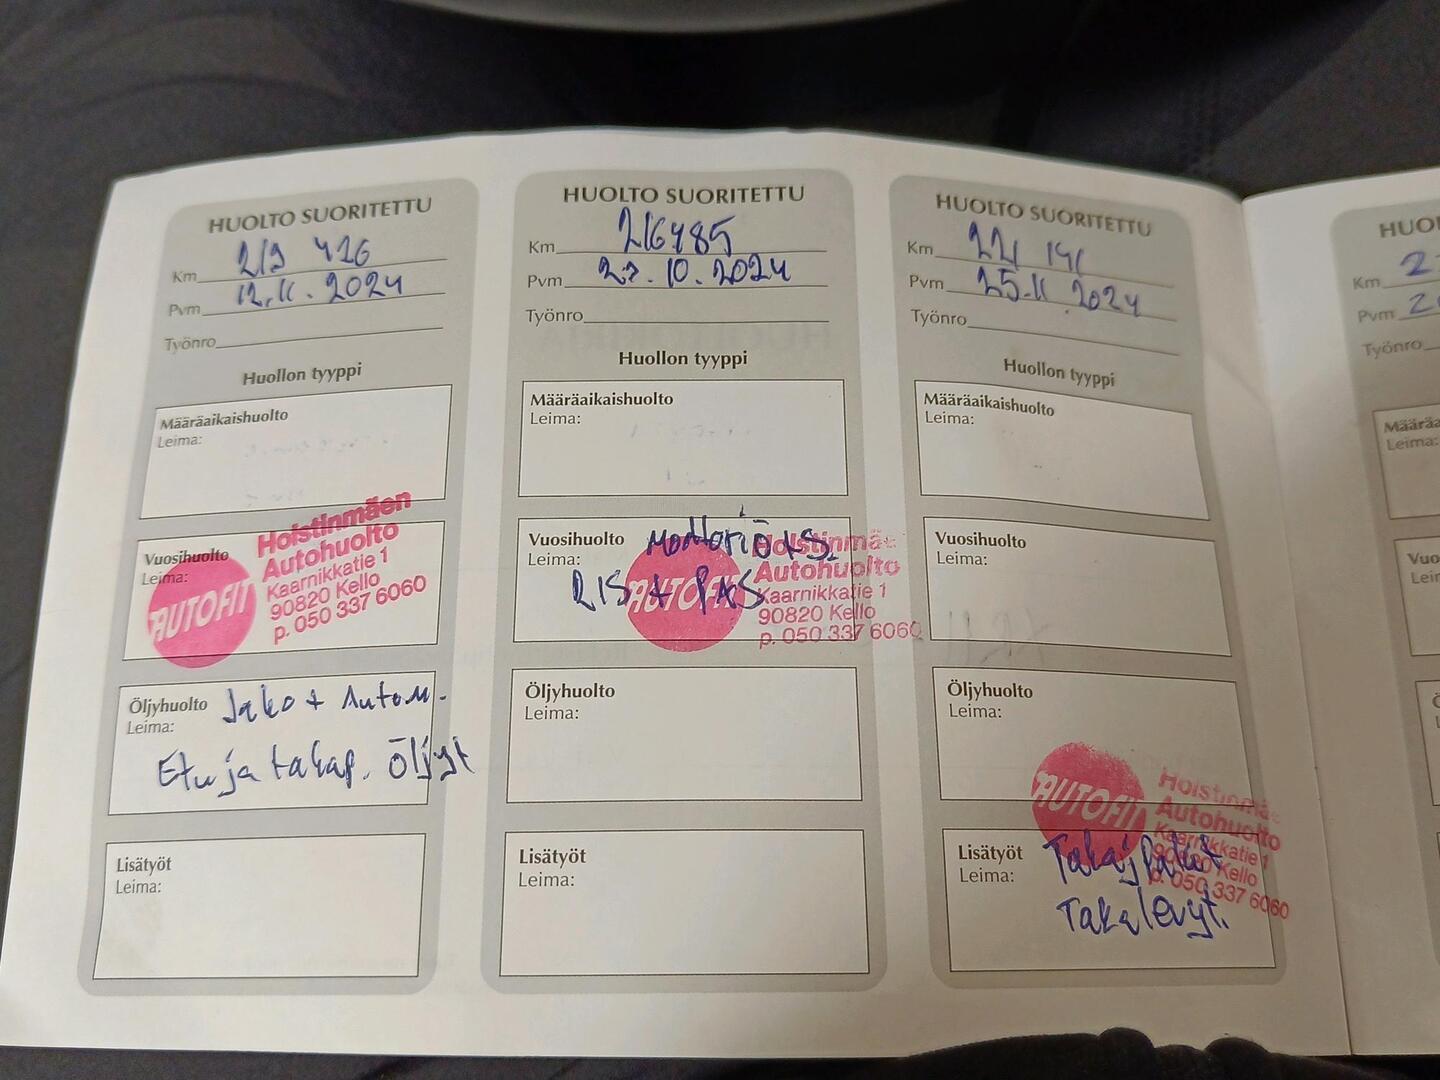 HUOLTO SUORITETTU
Km 219 426
Pvm 12.11.2024
Työnro
Huollon tyyppi
Määräaikaishuolto
Leima:
Vuosihuolto
Leima:
AUTOFIT
Hoistinmäen
Autohuolto
Kaarnikkatie 1
90820 Kello
p. 050 337 6060
Öljyhuolto Jako + Autom.
Leima:
Etu ja takap. Öljyt
Lisätyöt
Leima:
HUOLTO SUORITETTU
Km 216485
Pvm 22.10.2024
Työnro
Huollon tyyppi
Määräaikaishuolto
Leima:
Vuosihuolto Moottoriö + S.
Leima: RIS + PAS
AUTOFIT
Hoistinmäe
Autohuolto
Kaarnikkatie 1
90820 Kello
p. 050 337 6060
Öljyhuolto
Leima:
Lisätyöt
Leima:
HUOLTO SUORITETTU
Km 221 141
Pvm 25.11.2024
Työnro
Huollon tyyppi
Määräaikaishuolto
Leima:
Vuosihuolto
Leima:
Öljyhuolto
Leima:
AUTOFIT
Hoistinmäe
Autohuolto
Kaarnikkatie 1
90820 Kello
p. 050 337 6060
Lisätyöt Takajpalat
Leima: Takalevyt.
HUOL
Km 2
Pvm 2
Työnro
Määräa
Leima:
Vuo
Lei